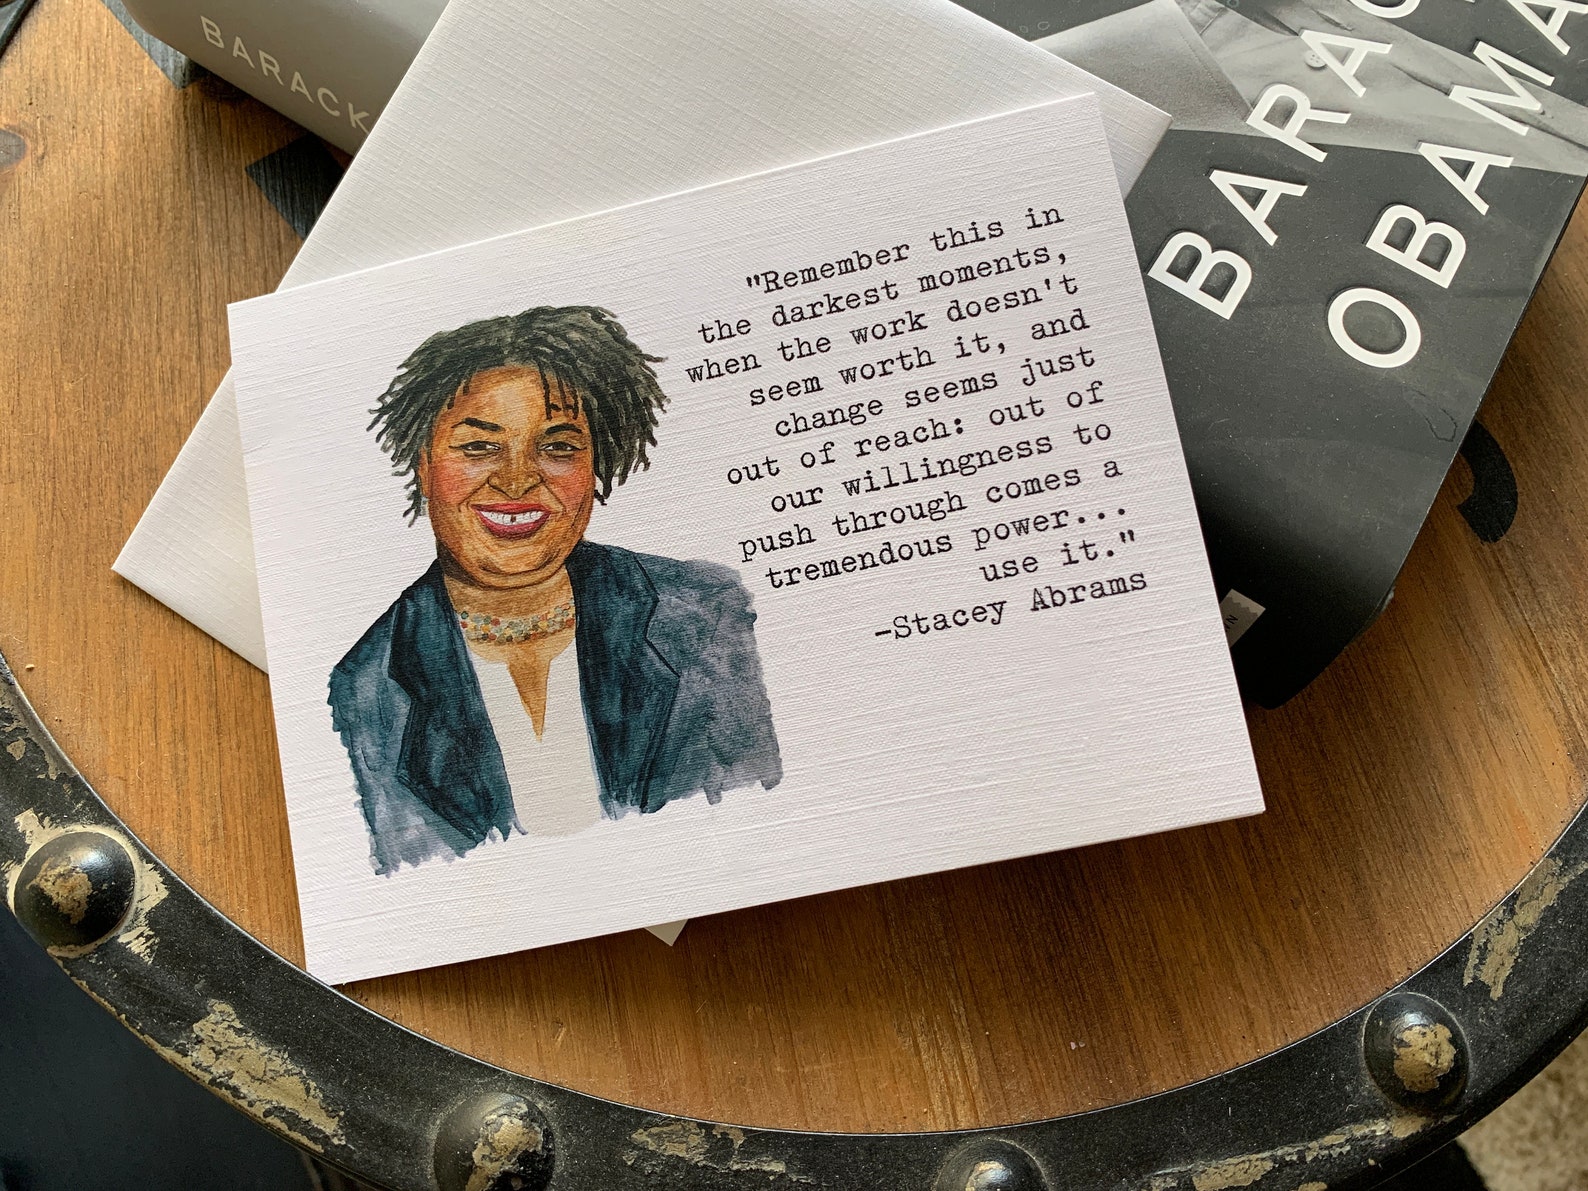 BARACK
BARAC
OBAMA
"Remember this in
the darkest moments,
when the work doesn't
seem worth it, and
change seems just
out of reach: out of
our willingness to
push through comes a
tremendous power...
use it."
-Stacey Abrams